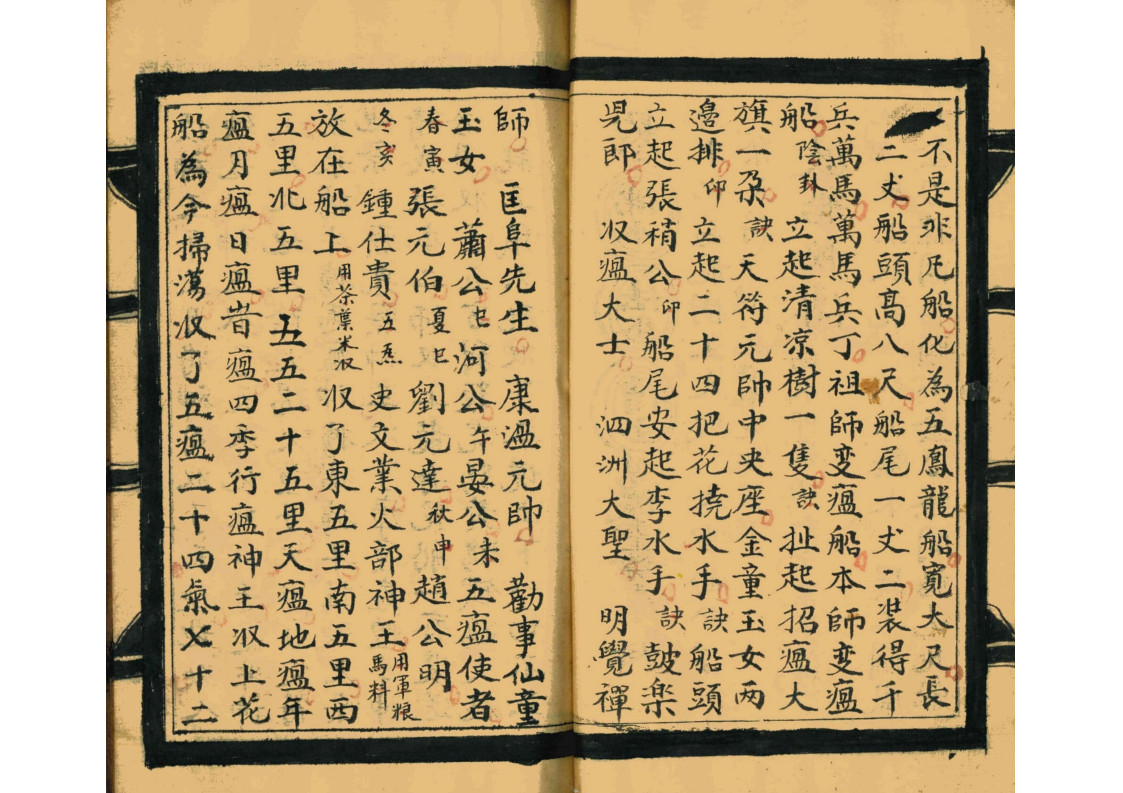 不是非凡船化為五鳳龍船寬大尺長
二丈船頭高八尺船尾一丈二装得千
兵萬馬萬馬兵丁祖師变瘟船本師变瘟
船陰卦立起清凉樹一隻訣扯起招瘟大
旗一朶訣天符元帥中央座金童玉女两
邉排卬立起二十四把花撓水手訣船頭
立起張稍公卬船尾安起李水手訣鼓楽
児郎 収瘟大士 泗洲大聖 明覺禪
師 匡阜先生 康溫元帥 勸事仙童
玉女 蕭公巳河公午晏公未五瘟使者
春寅張元伯夏巳劉元達秋申趙公明
冬亥鍾仕貴五炁史文業火部神王用軍粮馬料
放在船上用茶葉米収収了東五里南五里西
五里北五里五五二十五里天瘟地瘟年
瘟月瘟日瘟旹瘟四季行瘟神王収上花
船為今掃蕩収了五瘟二十四氣㐅十二